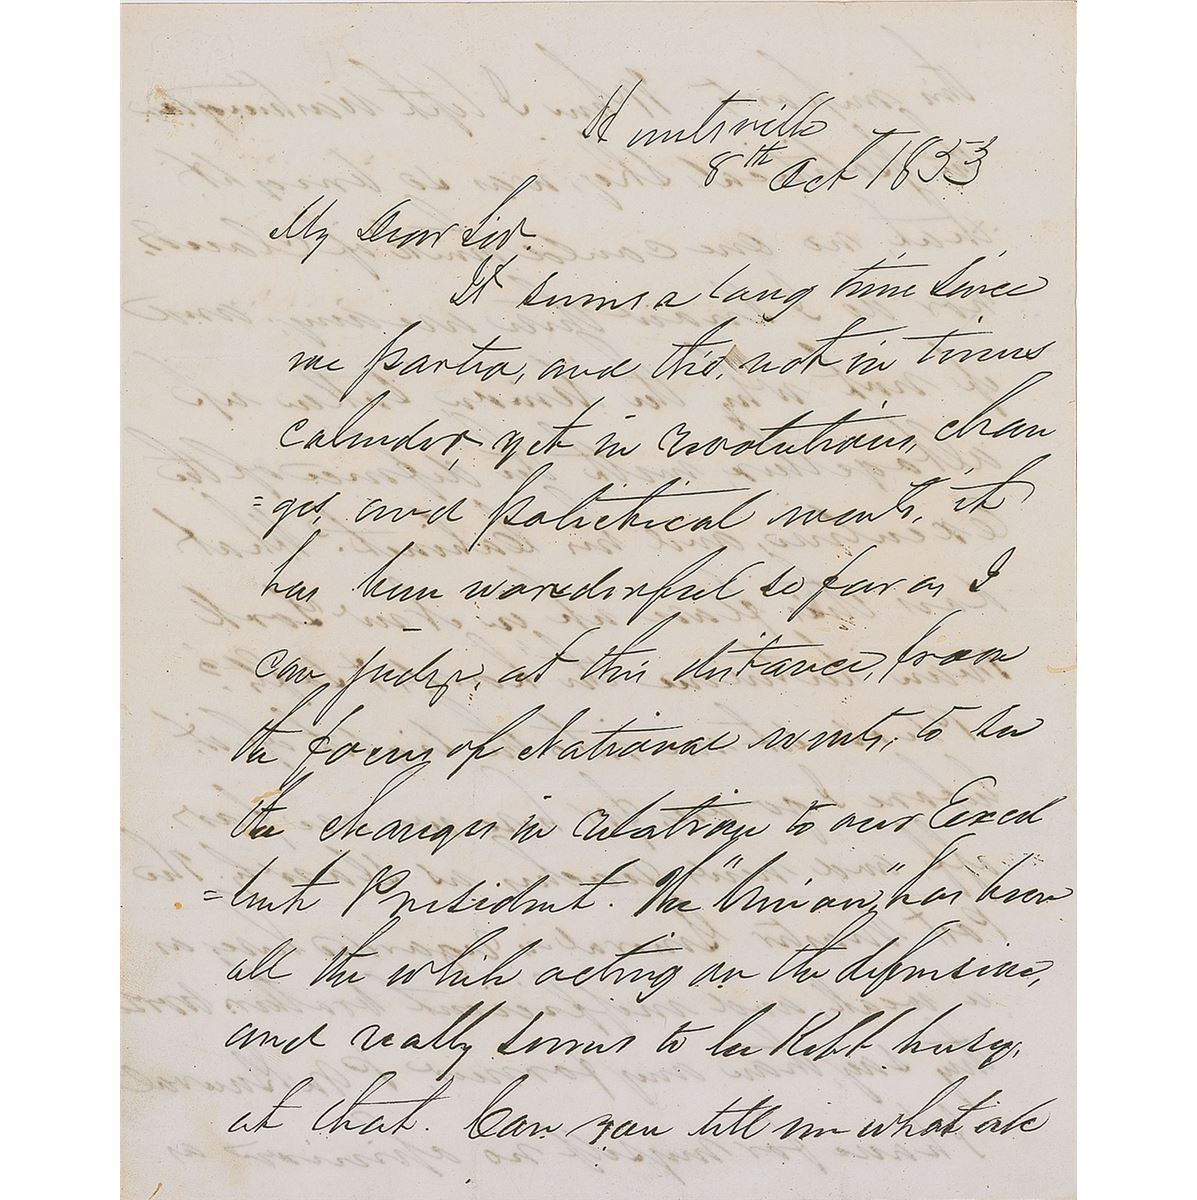 Huntsville
8th Oct 1853
My Dear Sir.
It seems a long time since
we parted, and tho, not in times
calender, yet in revolutions, chan
=ges, and politichal events, it
has been wonderful so far as I
can judge, at this distance, from
the focus of National events, to see
the changes in relation to our Excel
=lent President. The "Union" has been
all the while acting on the defensive,
and really seems to be Kept busy,
at that. Can you tell me what